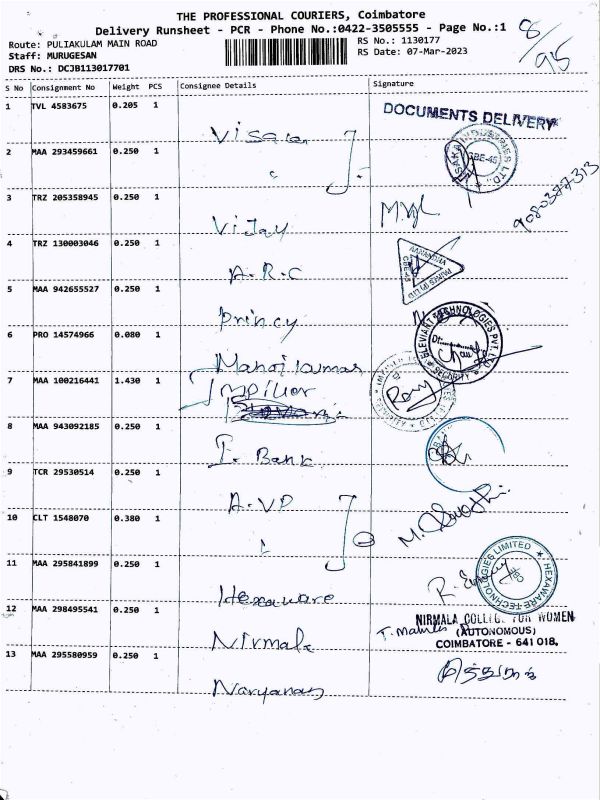 THE PROFESSIONAL COURIERS, Coimbatore
Delivery Runsheet - PCR - Phone No.:0422-3505555 - Page No.:1
8/95
Route: PULIAKULAM MAIN ROAD
RS No.: 1130177
Staff: MURUGESAN
RS Date: 07-Mar-2023
DRS No.: DCJB113017701
S No Consignment No Weight PCS Consignee Details Signature
1 TVL 4583675 0.205 1
DOCUMENTS DELIVERY
2 MAA 293459661 0.250 1
3 TRZ 205358945 0.250 1
9080377313
Vijay
4 TRZ 130003046 0.250 1
A.R.C
5 MAA 942655527 0.250 1
princy
6 PRO 14574966 0.080 1
ELEVIART TECHNOLOGIES PVT. LTD
SECURITY
Manoj kumar
7 MAA 100216441 1.430 1
8 MAA 943092185 0.250 1
I. Bank
9 TCR 29530514 0.250 1
A.VP
10 CLT 1548070 0.380 1
11 MAA 295841899 0.250 1
HEXAWARE TECHNOLOGIES LIMITED
Hexaware
12 MAA 298495541 0.250 1
NIRMALA COLLEGE FOR WOMEN
(AUTONOMOUS)
COIMBATORE - 641 018.
Nirmala
13 MAA 295580959 0.250 1
Naryanan